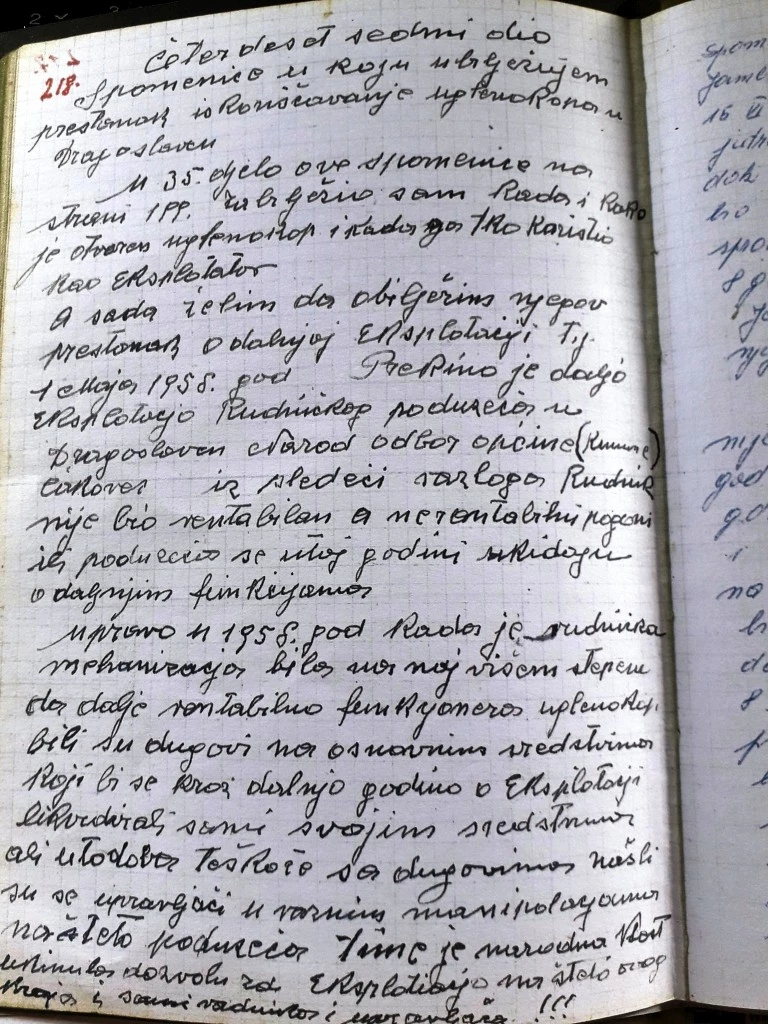 218.
Četerdeset sedmi dio
Spomenice u koju ubilježujem
prestanak iskorišćavanje uglenokopa u
Dragoslavcu
U 35. djelo ove spomenice na
strani 199. zabilježio sam kada i kako
je otvoren uglenokop i kada ga tko koristio
kao Eksplotator
A sada želim da obilježim njegov
prestanak o daljnjoj Eksplotaciji t.j.
1 Maja 1958. god Prekino je dalje
Eksplotacijo Rudničkog poduzeća u
Dragoslavcu Narod odbor općine (Komune)
Čakovec iz sledeći razloga Rudnik
nije bio rentabilan a nerentabilni pogoni
ili poduzeća se utoj godini ukidaju
o daljnjim funkcijama
Upravo u 1958. god kada je rudnička
mehanizacija bila na naj višem stepenu
da dalje rentabilno funkcionera uglenokop,
bili su dugovi na osnovnim sredstvima
koji bi se kroz dalnjo godino o Eksplotaciji
likvidirali sami svojim sredstvima
ali utodoba teškoće sa dugovima našli
su se upravljači u raznim manipolacijama
na šteto poduzeća time je narodna vlast
ukinula dozvolu za Eksplotaciju na šteto ovog
kraja i sami radnika i upravljača !!!
spom
jame
16
jutr
dok
bio
spo
8 g
nje
god
na
do
8